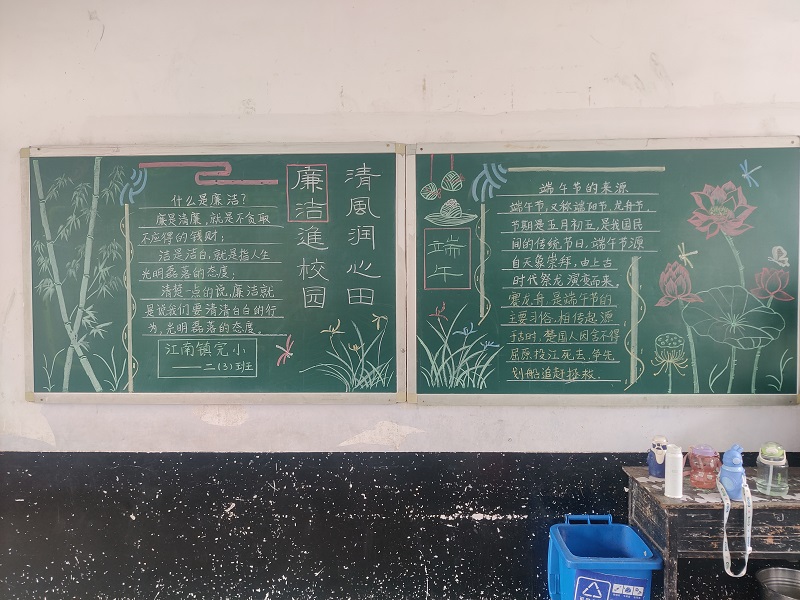 清風润心田
廉洁進校园
什么是廉洁？
廉是清廉，就是不贪取
不应得的钱财；
洁是洁白，就是指人生
光明磊落的态度；
清楚一点的说，廉洁就
是说我们要清清白白的行
为，光明磊落的态度。
江南镇完小
——二（3）班
端午
端午节的来源
端午节，又称端阳节，龙舟节，
节期是五月初五，是我国民
间的传统节日，端午节源
自天象崇拜，由上古
时代祭龙演变而来。
赛龙舟，是端午节的
主要习俗，相传起源
于古时，楚国人因舍不得
屈原投江死去，争先
划船追赶拯救．